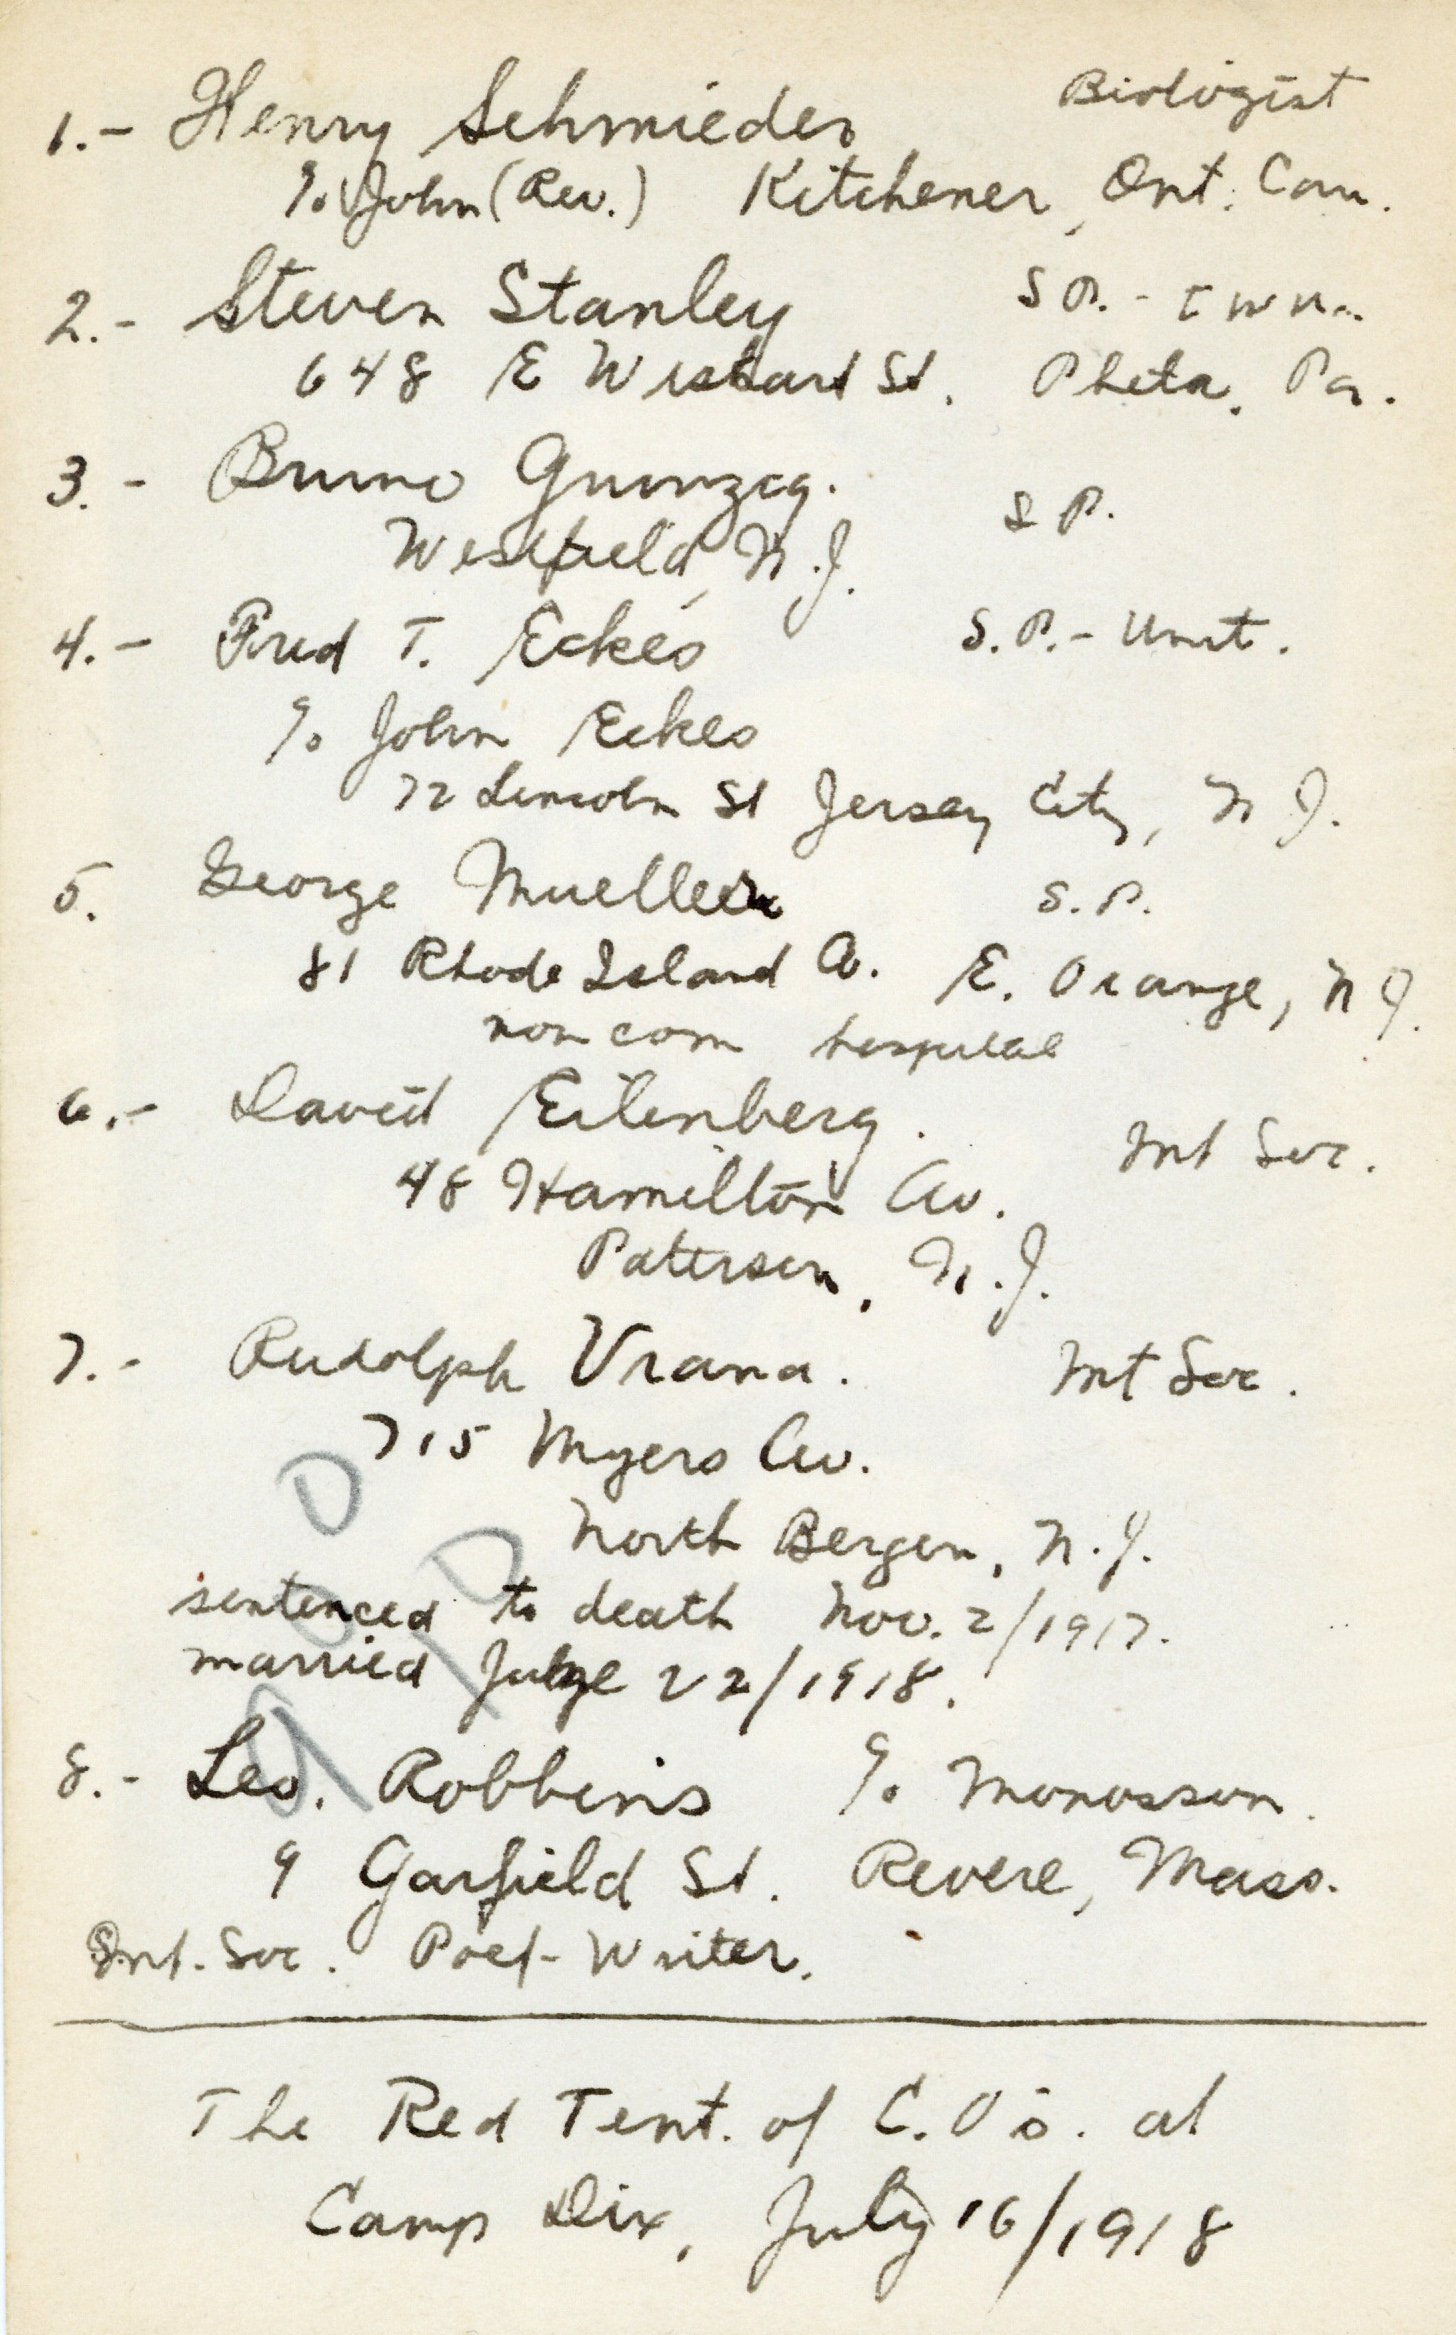 1.- Henry Schmieder Biologist
℅ John (Rev.) Kitchener, Ont. Can.
2.- Steven Stanley S P. - I W W.
648 E Wishart St. Phila. Pa.
3.- Bruno Grunzig. S P.
Westfield, N.J.
4.- Fred T. Eckes S.P.-Unit.
℅ John Eckes
72 Lincoln St Jersey City, N J.
5. George Mueller S.P.
81 Rhode Island A. E. Orange, N J.
non com hospital
6.- David Eilenberg. Int Soc.
48 Hamilton Av.
Paterson, N.J.
7.- Rudolph Vrana. Int Soc.
715 Myers Av.
North Bergen, N.J.
sentenced to death Nov. 2/1917.
married 22/1918.
8.- Leo. Robbins ℅ Monosson.
9 Garfield St. Revere, Mass.
Int. Soc. Poet-Writer.
The Red Tent. of C.O's. at
Camp Dix, July 16/1918